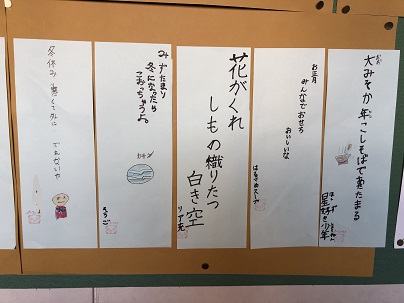 大みそか年こしそばで
あたたまる
星好き少年
お正月
みんなでおせち
おいしいな
はるさめスープ
花がくれ
しもの織りたつ
白き空
リア充
みずたまり
冬になったら
こおっちゃうよ。
カキン
冬休み 寒くて外に
でれないや